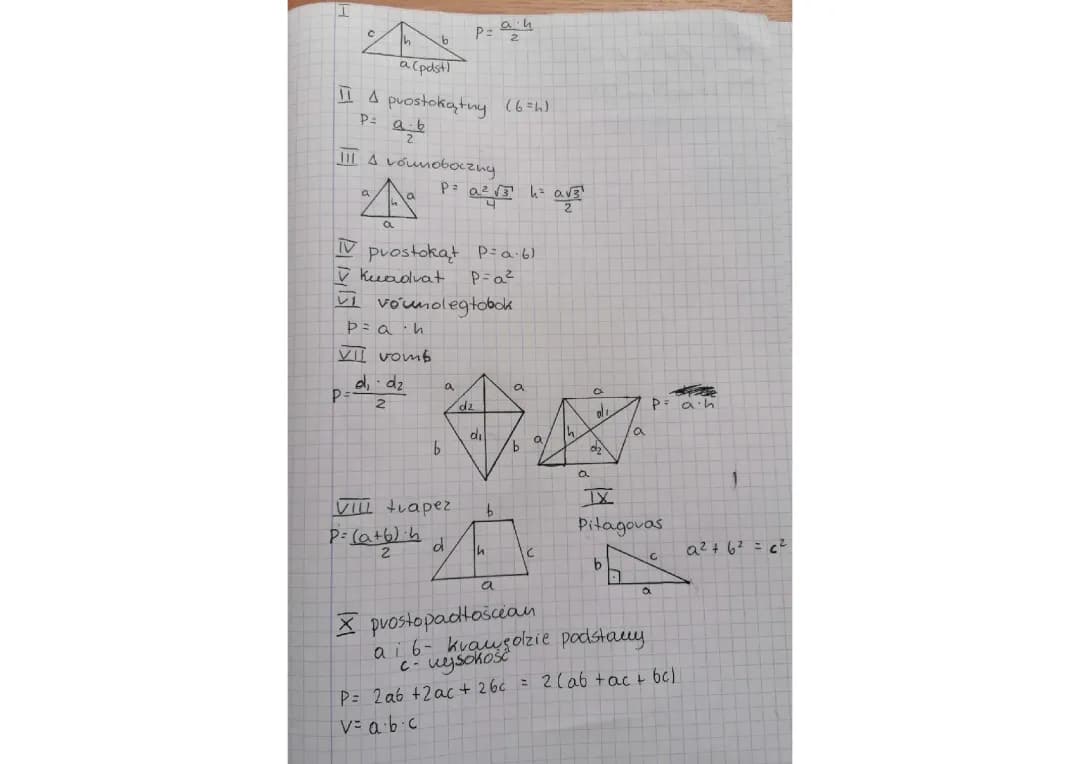 I
c h b P = a·h/2
a (pdst)
II Δ prostokątny (b=h)
P = a·b/2
III Δ równoboczny
a h a P = a²√3/4 h = a√3/2
a
IV prostokąt P = a·b)
V kwadrat P = a²
VI równoległobok
P = a · h
VII romb
P = d₁ · d₂/2
a a
d₂
d₁
b b
a
d₁
a h a
d₂
a
P = a·h
VIII trapez
P = (a+b)·h/2
b
d h c
a
IX
Pitagoras
b c a² + b² = c²
a
X prostopadłościan
a i b - krawędzie podstawy
c - wysokość
P = 2ab + 2ac + 2bc = 2(ab + ac + bc)
V = a·b·c